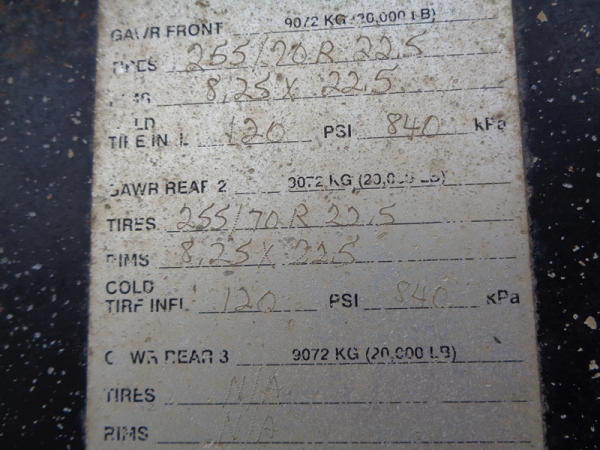 GAWR FRONT 9072 KG (20,000 LB)
TIRES 255/70R 22.5
RIMS 8.25 X 22.5
COLD
TIRE INFL 120 PSI 840 kPa
GAWR REAR 2 9072 KG (20,000 LB)
TIRES 255/70R 22.5
RIMS 8.25 X 22.5
COLD
TIRE INFL 120 PSI 840 kPa
GAWR REAR 3 9072 KG (20,000 LB)
TIRES N/A
RIMS N/A